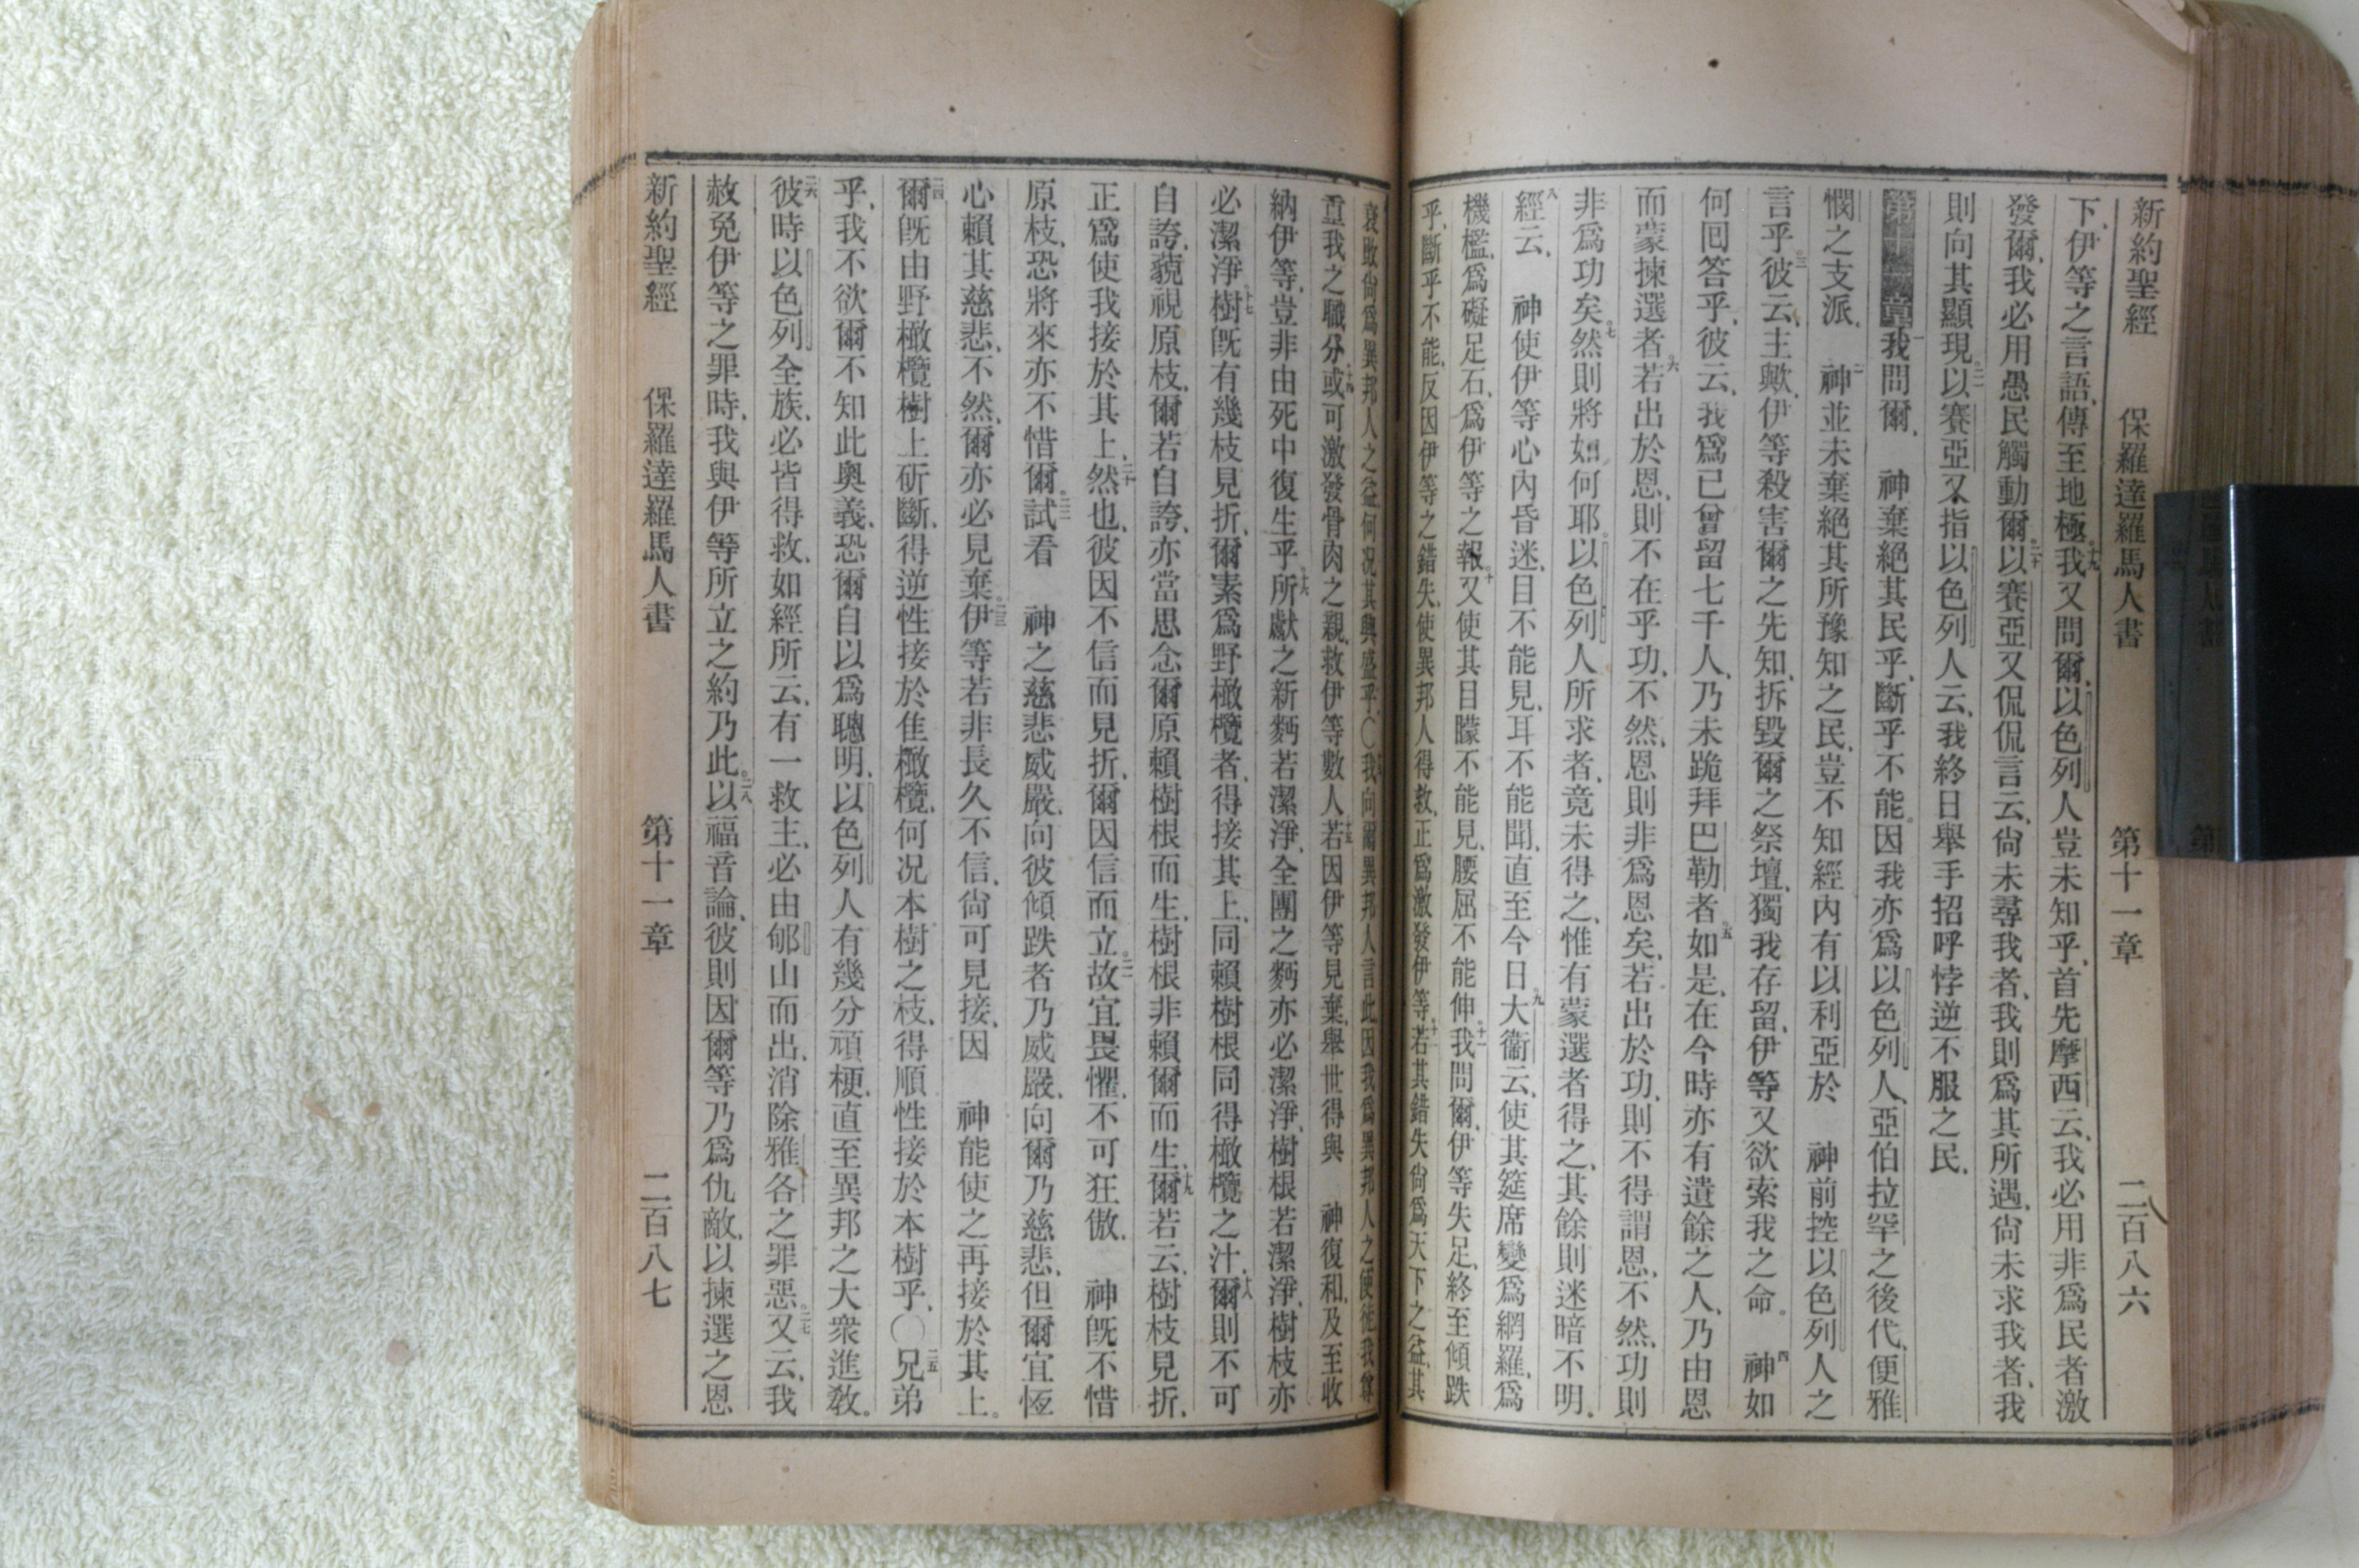 新約聖經　保羅達羅馬人書　第十一章　二百八六
下、伊等之言語、傳至地極。十九我又問爾、以色列人豈未知乎、首先摩西云、我必用非爲民者激
發爾、我必用愚民觸動爾。二十以賽亞又侃侃言云、尙未尋我者、我則爲其所遇、尙未求我者、我
則向其顯現。二一以賽亞又指以色列人云、我終日舉手招呼悖逆不服之民、
章一我問爾、　神棄絕其民乎、斷乎不能。因我亦爲以色列人、亞伯拉罕之後代、便雅
憫之支派、　二神並未棄絕其所豫知之民、豈不知經內有以利亞於　神前控以色列人之
言乎。三彼云、主歟、伊等殺害爾之先知、拆毀爾之祭壇、獨我存留、伊等又欲索我之命。　四神如
何回答乎、彼云、我爲已曾留七千人、乃未跪拜巴勒者。五如是、在今時亦有遺餘之人、乃由恩
而蒙揀選者。六若出於恩、則不在乎功、不然、恩則非爲恩矣、若出於功、則不得謂恩、不然、功則
非爲功矣。七然則將如何耶。以色列人所求者、竟未得之、惟有蒙選者得之、其餘則迷暗不明、
八經云、　神使伊等心內昏迷、目不能見、耳不能聞、直至今日。九大衞云、使其筵席變爲網羅、爲
機檻、爲礙足石、爲伊等之報。十又使其目矇不能見、腰屈不能伸。十一我問爾、伊等失足、終至傾跌
乎、斷乎不能、反因伊等之錯失、使異邦人得救、正爲激發伊等。十二若其錯失尙爲天下之益、其
衰敗尙爲異邦人之益、何况其興盛乎、〇我向爾異邦人言此、因我爲異邦人之使徒、我尊
重我之職分。十四或可激發骨肉之親、救伊等數人。十五若因伊等見棄、舉世得與　神復和、及至收
納伊等、豈非由死中復生乎。十六所獻之新麪若潔淨、全團之麪亦必潔淨、樹根若潔淨、樹枝亦
必潔淨。十七樹旣有幾枝見折、爾素爲野橄欖者、得接其上、同賴樹根同得橄欖之汁、十八爾則不可
自誇、藐視原枝、爾若自誇、亦當思念爾原賴樹根而生、樹根非賴爾而生、十九爾若云、樹枝見折、
正爲使我接於其上、二十然也、彼因不信而見折、爾因信而立。二一故宜畏懼、不可狂傲、　神旣不惜
原枝、恐將來亦不惜爾。二二試看　神之慈悲威嚴、向彼傾跌者乃威嚴、向爾乃慈悲、但爾宜恆
心賴其慈悲、不然、爾亦必見棄。二三伊等若非長久不信、尙可見接、因　神能使之再接於其上。
二四爾旣由野橄欖樹上斫斷、得逆性接於佳橄欖、何况本樹之枝、得順性接於本樹乎、〇二五兄弟
乎、我不欲爾不知此奧義、恐爾自以爲聰明、以色列人有幾分頑梗、直至異邦之大衆進敎。
二六彼時以色列全族、必皆得救、如經所云、有一救主、必由郇山而出、消除雅各之罪惡。二七又云、我
赦免伊等之罪時、我與伊等所立之約乃此。二八以福音論、彼則因爾等乃爲仇敵、以揀選之恩
新約聖經　保羅達羅馬人書　第十一章　二百八七